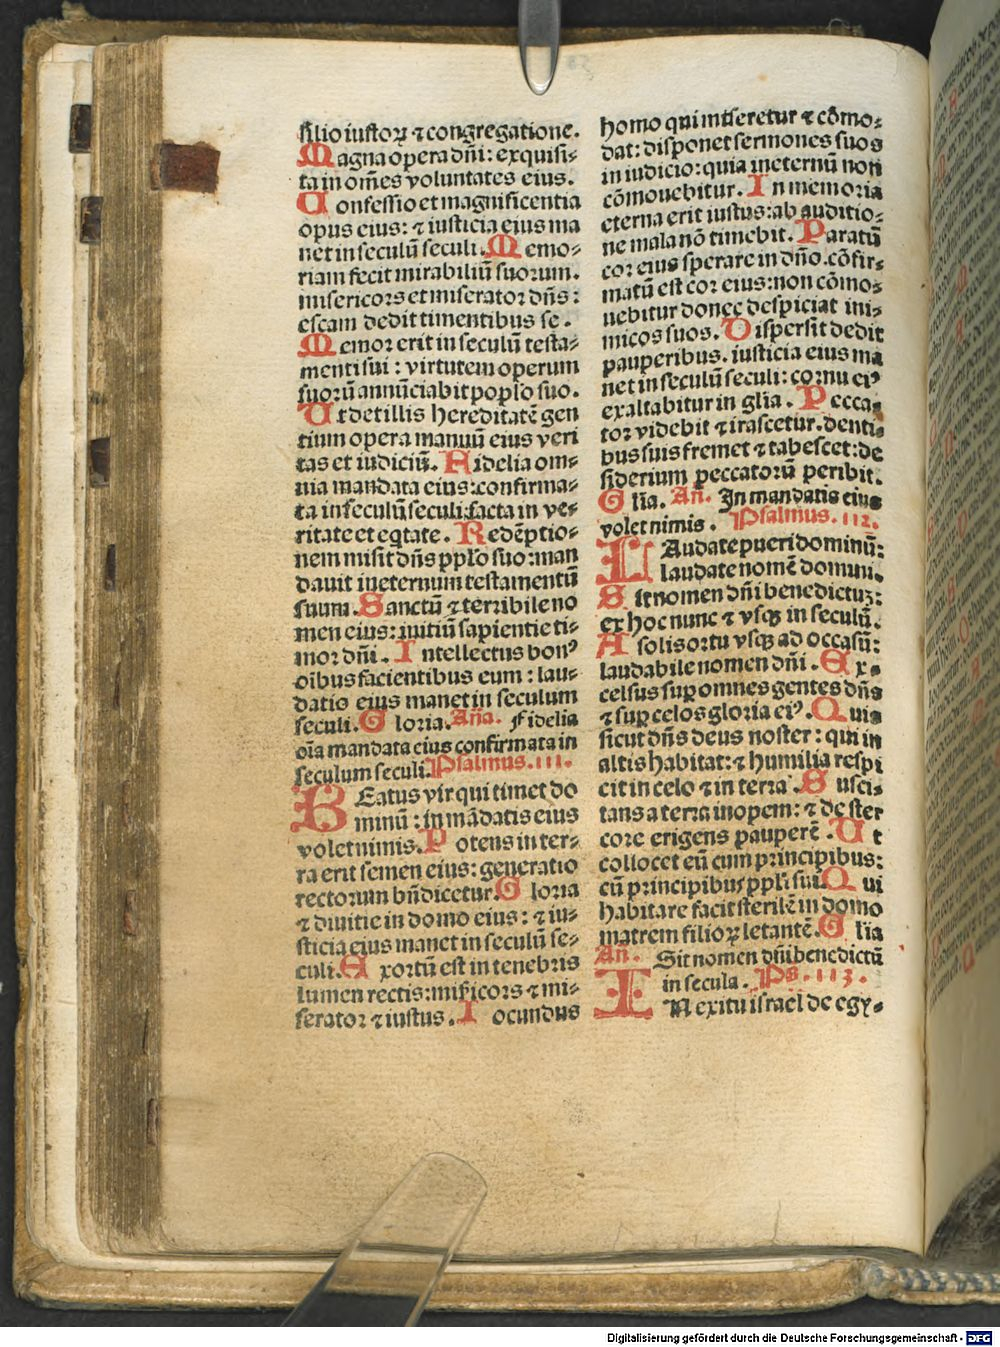 silio iustoꝝ ⁊ congregatione.
Magna opera dñi: exquisi-
ta in om̃es voluntates eius.
Confessio et magnificentia
opus eius: ⁊ iusticia eius ma
net in seculũ seculi. Memo-
riam fecit mirabiliũ suorum.
misericors et miserator dñs:
escam dedit timentibus se.
Memor erit in seculũ testa-
menti sui: virtutem operum
suorũ annũciabit poplo suo.
Ut det illis hereditatẽ gen
tium opera manuũ eius veri
tas et iudiciũ. Fidelia om-
nia mandata eius: confirma-
ta in seculũ seculi facta in ve-
ritate et eqtate. Redẽptio-
nem misit dñs pplo suo: man
dauit ineternum testamentũ
suum. Sanctũ ⁊ terribile no
men eius: initiũ sapientie ti-
mor dñi. Intellectus bonꝰ
oĩbus facientibus eum: lau-
datio eius manet in seculum
seculi. Gloria. Aña. Fidelia
oĩa mandata eius confirmata in
seculum seculi. Psalmus. 111.
BEatus vir qui timet do
minũ: in mãdatis eius
volet nimis. Potens in ter-
ra erit semen eius: generatio
rectorum bñdicetur. Gloria
⁊ diuitie in domo eius: ⁊ iu-
sticia eius manet in seculũ se-
culi. Exortũ est in tenebris
lumen rectis: mĩsicors ⁊ mi-
serator ⁊ iustus. Iocundus
homo qui miseretur ⁊ cõmo-
dat: disponet sermones suos
in iudicio: quia ineternũ non
cõmouebitur. In memoria
eterna erit iustus: ab auditio-
ne mala nõ timebit. Paratũ
cor eius sperare in dño. cõfir-
matũ est cor eius: non cõmo-
uebitur donec despiciat ini-
micos suos. Dispersit dedit
pauperibus. iusticia eius ma
net in seculũ seculi: cornu eiꝰ
exaltabitur in glia. Pecca-
tor videbit ⁊ irascetur. denti-
bus suis fremet ⁊ tabescet: de
siderium peccatorũ peribit.
Glia. Añ. In mandatis eius
volet nimis. Psalmus. 112.
LAudate pueri dominũ:
laudate nomẽ domini.
Sit nomen dñi benedictuʒ:
ex hoc nunc ⁊ vsqʒ in seculũ.
A solis ortu vsqʒ ad occasũ:
laudabile nomen dñi. Ex-
celsus sup omnes gentes dñs
⁊ sup celos gloria eiꝰ. Quis
sicut dñs deus noster: qui in
altis habitat: ⁊ humilia respi
cit in celo ⁊ in terra. Susci-
tans a terra inopem: ⁊ de ster
core erigens pauperẽ. Ut
collocet eũ cum principibus:
cũ principibus ppli sui. Qui
habitare facit sterilẽ in domo
matrem filioꝝ letantẽ. Glia
Añ. Sit nomen dñi benedictũ
in secula. Ps. 113.
IN exitu israel de egy-
Digitalisierung gefördert durch die Deutsche Forschungsgemeinschaft - DFG